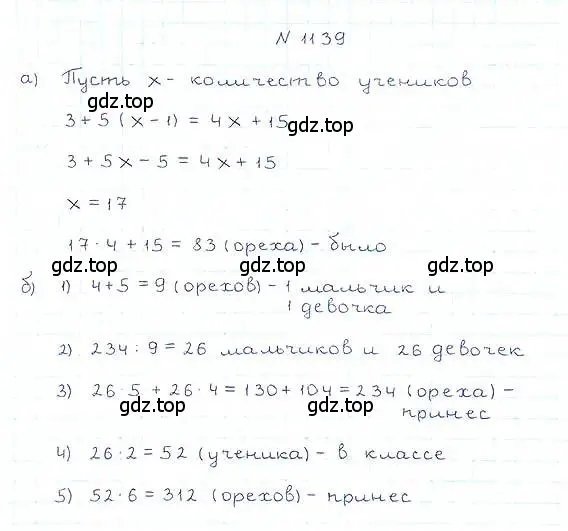 N 1139
а) Пусть x - количество учеников
gdz.top
3 + 5 (x - 1) = 4x + 15
gdz.top
3 + 5x - 5 = 4x + 15
x = 17
17 · 4 + 15 = 83 (ореха) - было
gdz.top gdz.top
б) 1) 4 + 5 = 9 (орехов) - 1 мальчик и
1 девочка
2) 234 : 9 = 26 мальчиков и 26 девочек
3) 26 · 5 + 26 · 4 = 130 + 104 = 234 (ореха) -
gdz.top gdz.top принес
4) 26 · 2 = 52 (ученика) - в классе
5) 52 · 6 = 312 (орехов) - принес